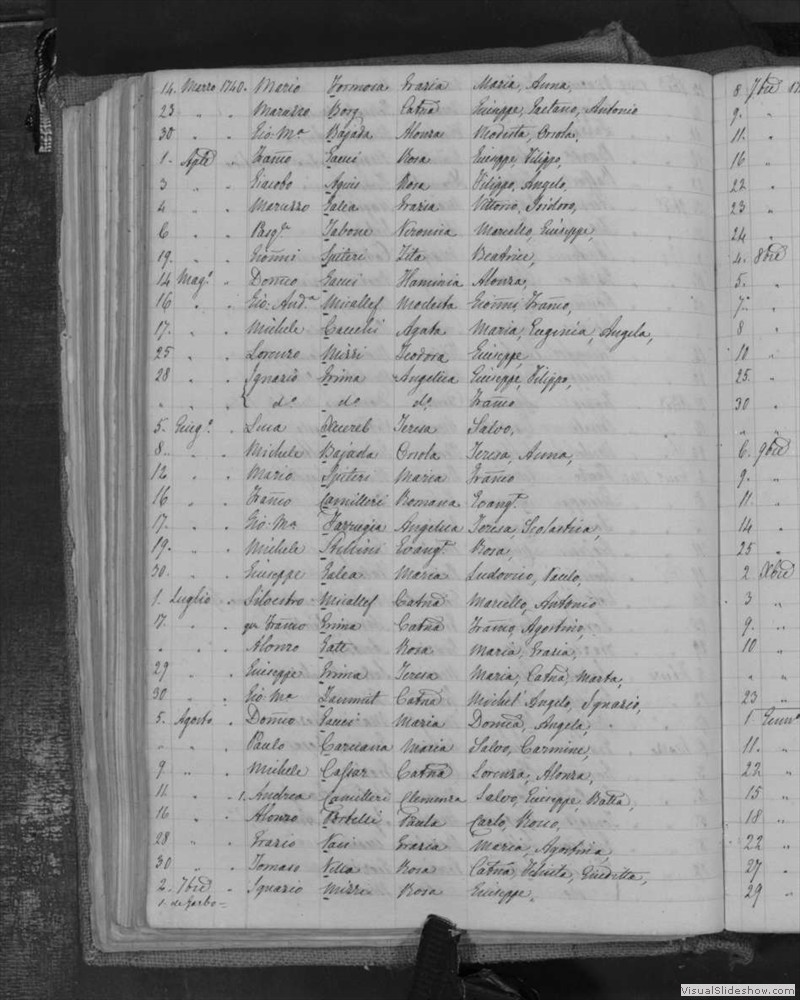 14. Marzo 1740. Mario Formosa Grazia Maria, Anna,
23 " " Maruzzo Borg Catnã Giuseppe, Gaetano, Antonio
30 " " Gio: Mª Bajada Alonza Modesta, Oriola,
1. Aple " Franco Gauci Rosa Giuseppe, Filippo,
3 " " Giacobo Agius Rosa Filippo, Angelo,
4 " " Maruzzo Galea Grazia Vittorio, Isidoro,
6 " " Pasqe Tabone Veronica Mariello, Giuseppe,
19. " " Gionni Spiteri Tita Beatrice,
14 Mago " Domco Gauci Flaminia Alonza,
16 " " Gio: Anda Micallef Modesta Gionni, Franco,
17. " " Michele Caruchi Agata Maria, Eugenia, Angela,
25 " " Lorenzo Mizzi Teodora Giuseppe
28 " " Ignazio Grima Angelica Giuseppe, Filippo,
" " { do do do Franco
5. Giugo " Luca Teresa Salvo,
8. " " Michele Bajada Oriola Teresa, Anna,
12 " " Mario Spiteri Maria Franco
16 " " Franco Camilleri Romana Evangta
17. " " Gio: Mª Farrugia Angelica Teresa, Scolastica,
19. " " Michele Stellini Evangta Rosa,
30. " " Giuseppe Galea Maria Ludovico, Paulo,
1. Luglio " Silvestro Micallef Catnã Mariello, Antonio
17. " " qm Franco Grima Catnã Franco, Agostino,
" " " Alonzo Gatt Rosa Maria, Grazia,
29 " " Giuseppe Grima Teresa Maria, Catnã, Marta,
30 " " Gio: Mª Zammut Catnã Michel'Angelo, Ignazio,
5. Agosto " Domco Gauci Maria Domca, Angela,
" " " Paulo Caruana Maria Salvo, Carmine,
9 " " Michele Cassar Catnã Lorenza, Alonza,
11 " " 1. Andrea Camilleri Clemenza Salvo, Giuseppe, Batta,
16 " " Alonzo Portelli Paula Carlo, Rosa,
28 " " Grazio Vaci Grazia Maria, Agostina,
30 " " Tomaso Vella Rosa Catnã, Felicita, Giuditta,
2. 7bre " Ignazio Mizzi Rosa Giuseppe.
8 7bre 17
9. "
11. "
16 "
22 "
23 "
24 "
4. 8bre
5. "
7. "
8 "
10 "
25. "
30 "
" "
6. 9bre
9. "
11. "
14 "
25 "
2 Xbre
3 "
9. "
10 "
" "
23 "
1 Genno
11. "
22 "
15 "
18 "
22 "
27 "
29 "
VisualSlideshow.com